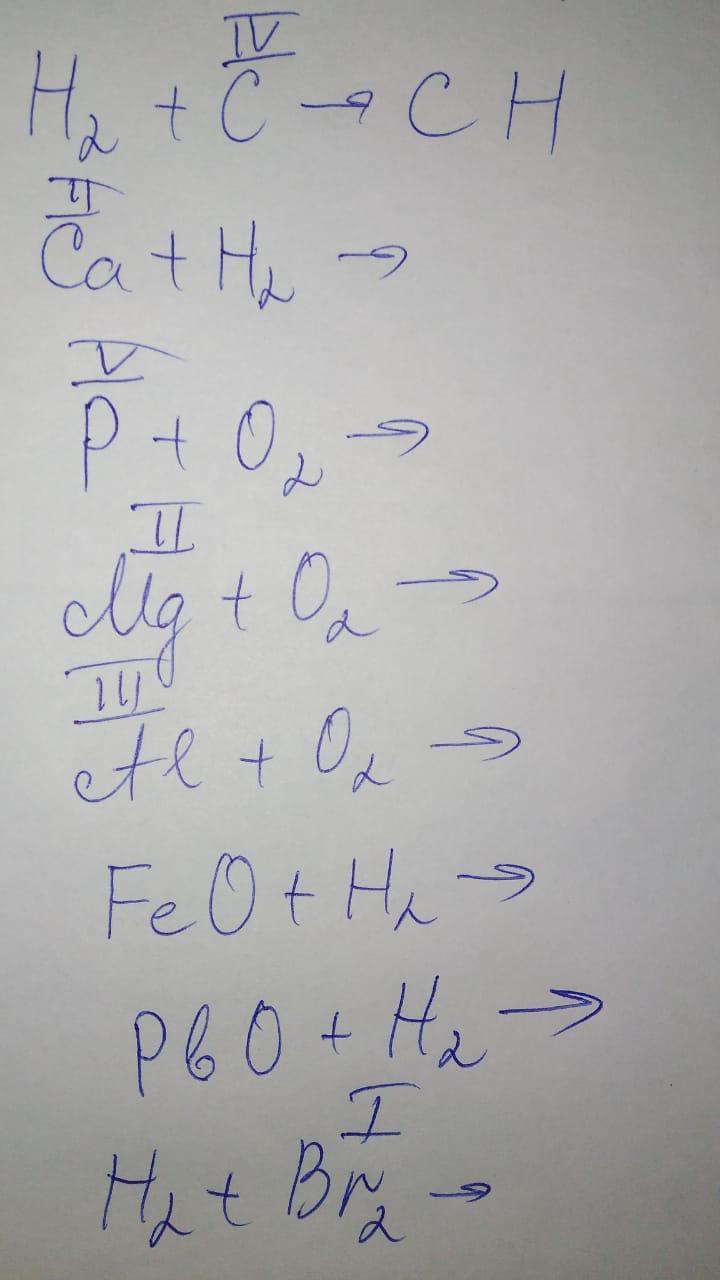 IV
H₂ + C → CH
II
Ca + H₂ →
V
P + O₂ →
II
Mg + O₂ →
III
Al + O₂ →
FeO + H₂ →
PbO + H₂ →
I
H₂ + Br₂ →